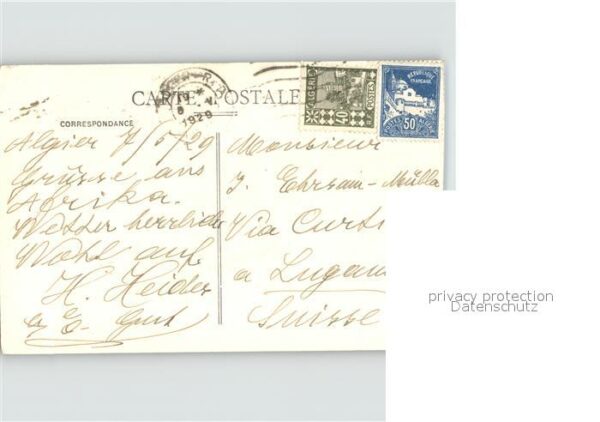 CARTE POSTALE
1929
ALGERIE
POSTES
40
REPUBLIQUE FRANÇAISE
POSTES ALGERIE
50
CORRESPONDANCE
Algier 7/5/29
Grüsse aus
Afrika.
Wetter herrlich
Wohl auf
H. Heider
Monsieur
J. Ehrsam-Mülla
Via Curti
a Lugan
Suisse
privacy protection
Datenschutz